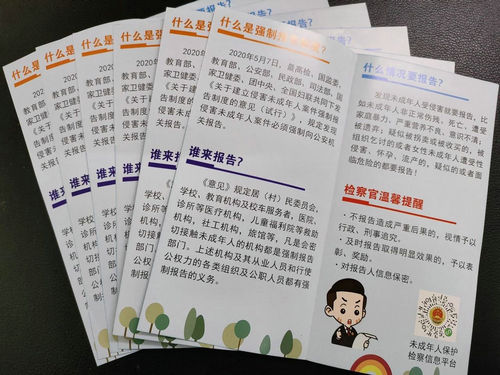 什么是强
2020
教育部、
家卫健委
《关于
告制度
侵害未
关报告。
谁来报告?
什么是强制报告制度?
2020年5月7日，最高检、国监委、
教育部、公安部、民政部、司法部、国
家卫健委、团中央、全国妇联共同下发
《关于建立侵害未成年人案件强制报
告制度的意见（试行）》，规定发现
侵害未成年人案件必须强制向公安机
关报告。
谁来报告?
《意见》规定居（村）民委员会，
学校、教育机构及校车服务者，医院、
诊所等医疗机构，儿童福利院等救助
机构，社工机构，旅馆等，凡是会密
切接触未成年人的机构都是强制报告
部门。上述机构及其从业人员和行使
公权力的各类组织及公职人员都有强
制报告的义务。
什么情况要报告?
发现未成年人受侵害就要报告，比
如未成年人非正常伤残、死亡，遭受
家庭暴力、严重营养不良、意识不清；
被遗弃；疑似被拐卖或被收买的，被
组织乞讨的或者女性未成年人遭受性
侵害、怀孕、流产的，疑似的或者面
临危险的都要报告！
检察官温馨提醒
·不报告造成严重后果的，视情予以
行政、刑事追究。
·及时报告取得明显效果的，予以表
彰、奖励。
·对报告人信息保密。
未成年人保护
检察信息平台